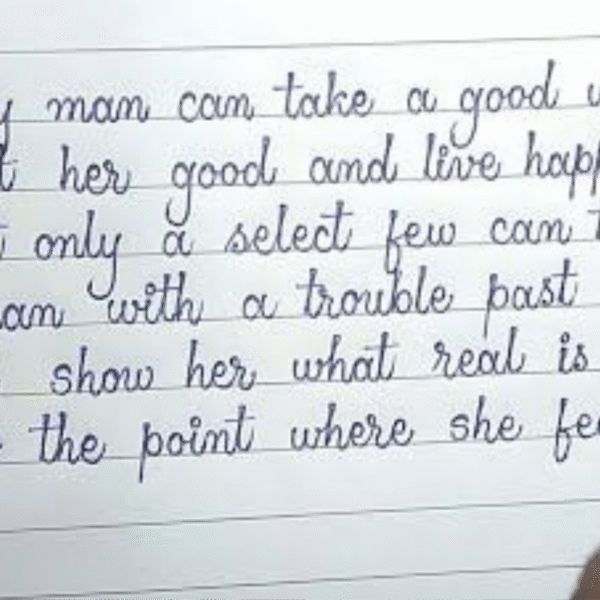 man can take a good
her good and live
only a select few can
with a trouble past
show her what real is
the point where she